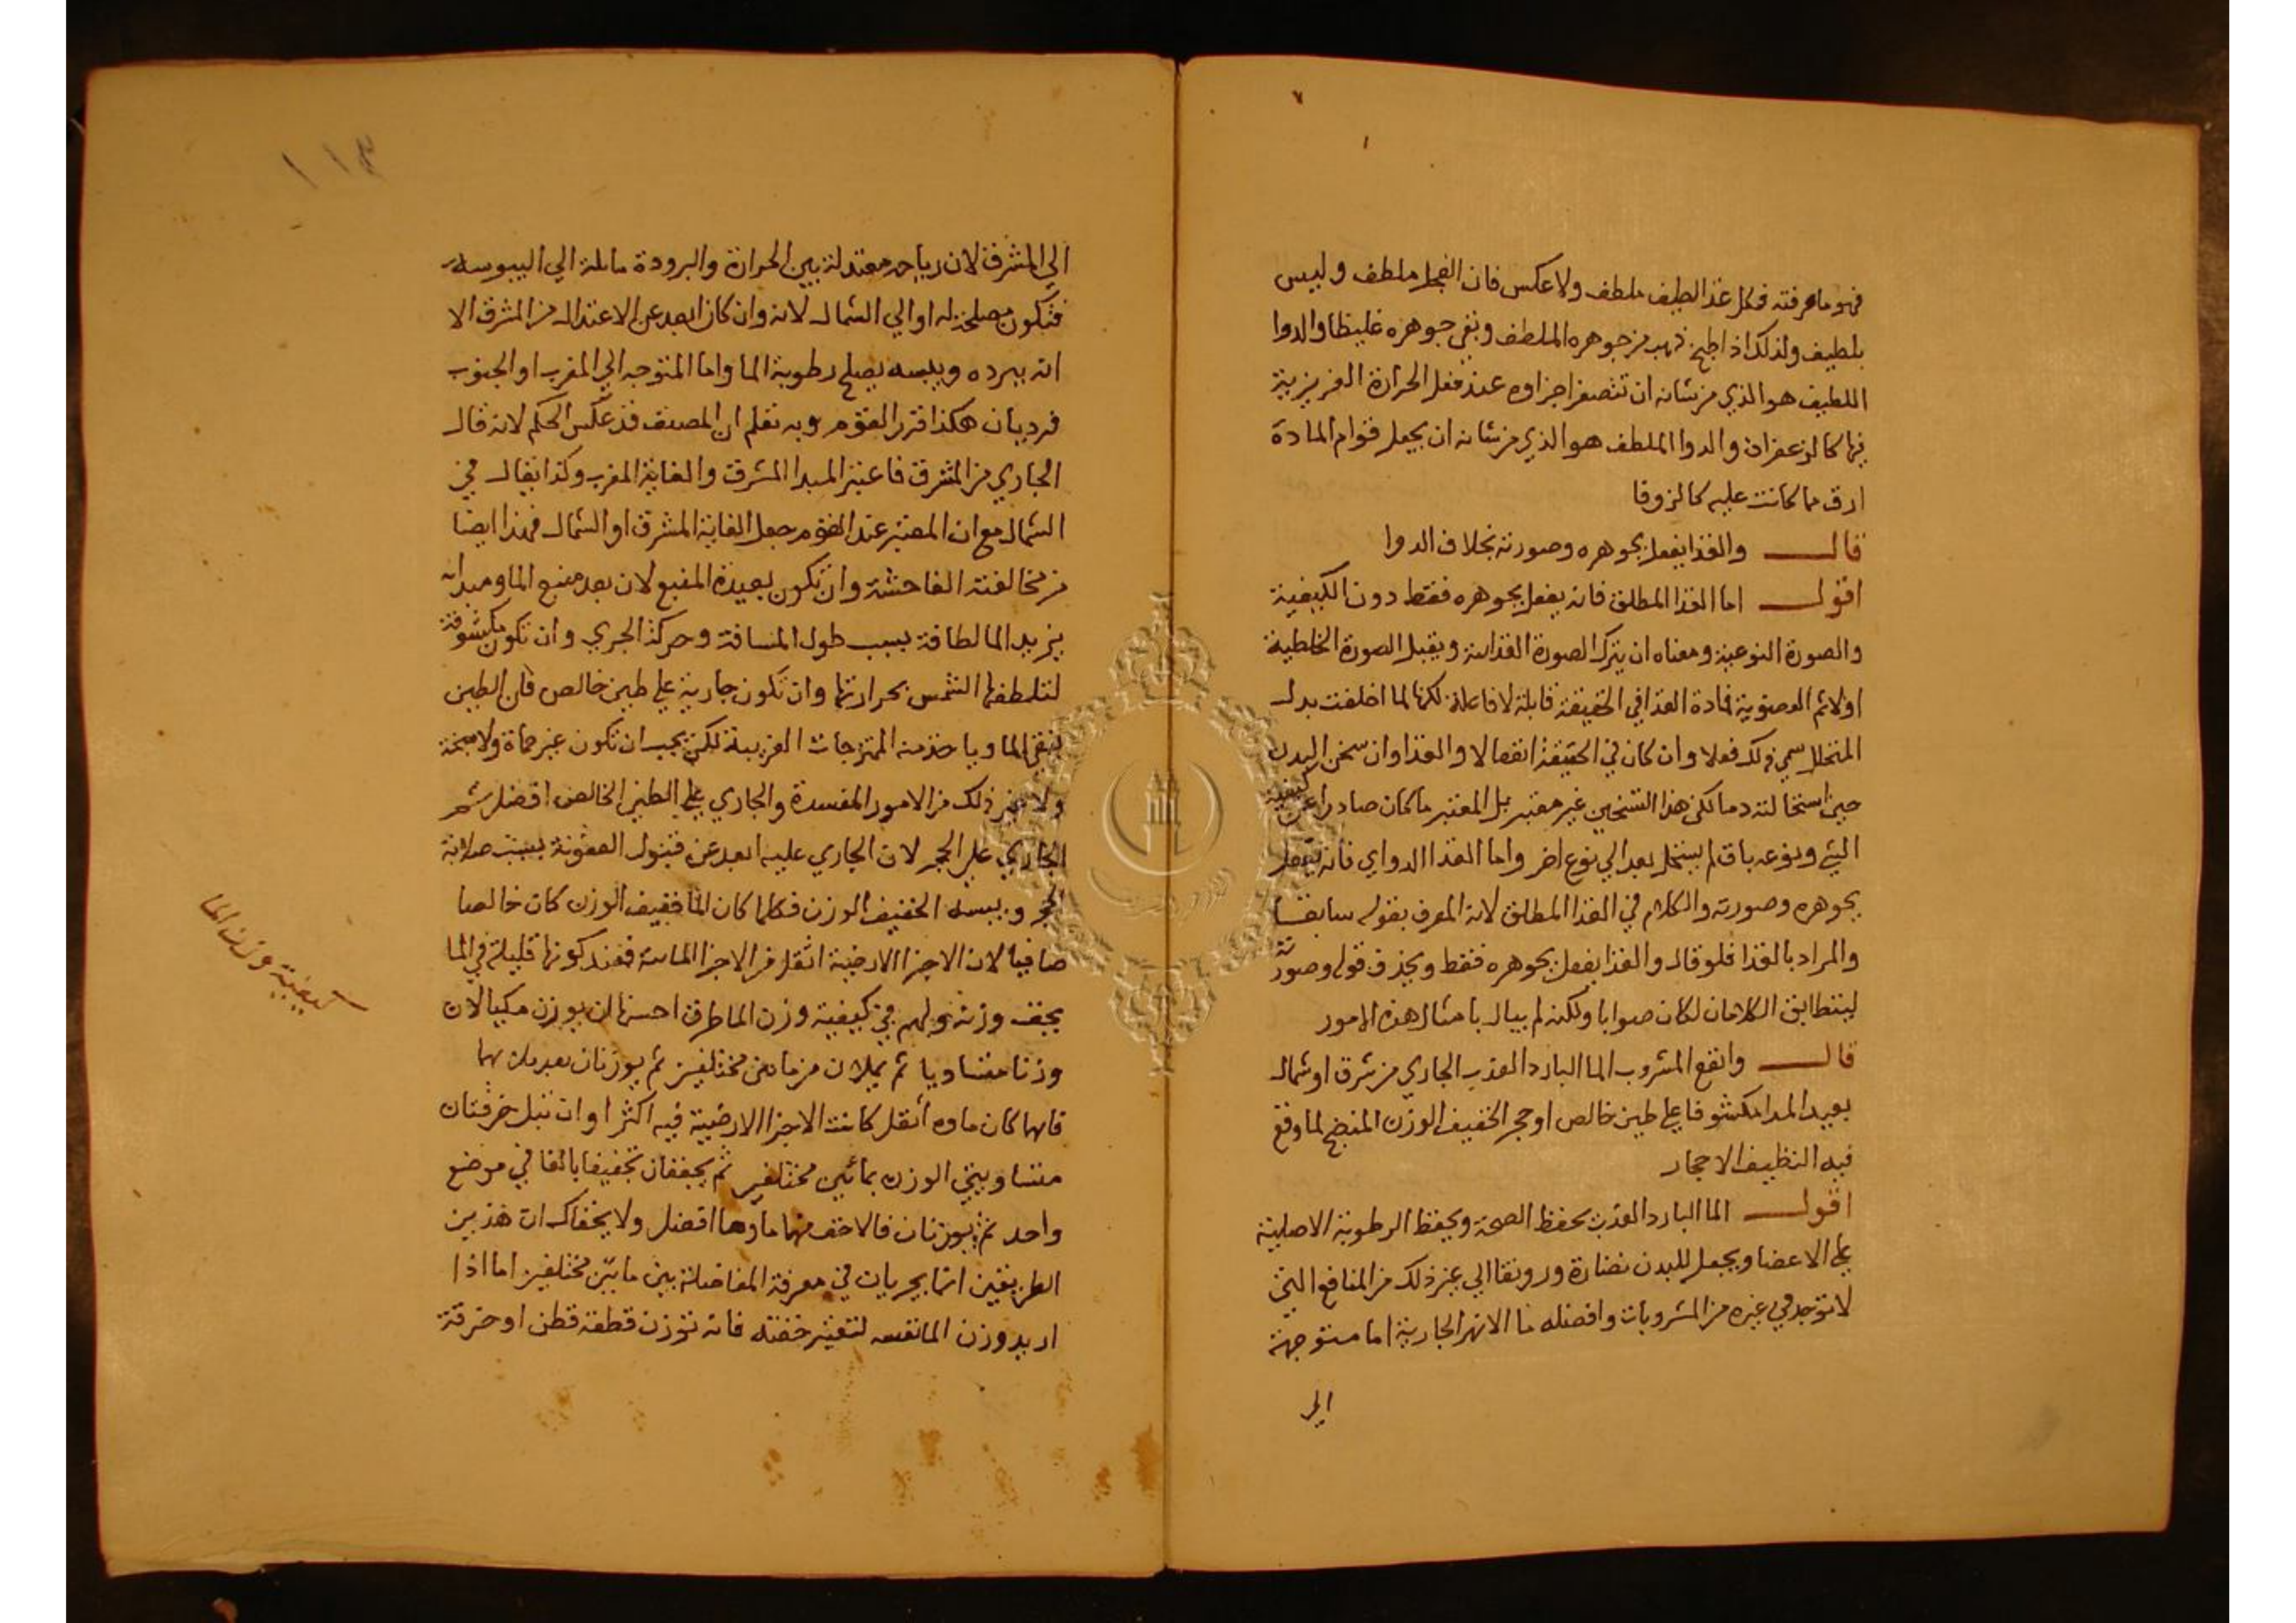 فهو ما عرفته فكل غذا لطيف ملطف ولا عكس فان الفجل ملطف وليس
بلطيف ولذلك اذا طبخ ذهب من جوهره الملطف وبقي جوهره غليظا والدوا
اللطيف هو الذي من شانه ان تتصغر اجزاوه عند فعل الحرارة الغريزية
فيها كالزعفران والدوا الملطف هو الذي من شانه ان يجعل قوام المادة
ارق مما كانت عليه كالزوفا
قال والغذا يفعل بجوهره وصورته بخلاف الدوا
اقول اما الغذا المطلق فانه يفعل بجوهره فقط دون الكيفية
والصورة النوعية ومعناه ان يترك الصورة الغذائية ويقبل الصورة الخلطية
اولا ثم العضوية فمادة الغذا في الحقيقة قابلة لا فاعلة لكنها لما اخلفت بدل
المتحلل سمي ذلك فعلا وان كان في الحقيقة انفعالا والغذا وان سخن البدن
حين استحالته دما لكن هذا التسخين غير معتبر بل المعتبر ما كان صادرا عن كيفية
الشي ونوعه باق لم يستحل بعد الي نوع اخر واما الغذا الدواي فانه يفعل
بجوهره وصورته والكلام في الغذا المطلق لانه المعرف بقوله سابقا
والمراد بالغذا فلو قال والغذا يفعل بجوهره فقط ويحذف قوله وصورته
ليتطابق الكلامان لكان صوابا ولكنه لم يبال بامثال هذه الامور
قال وانفع المشروب الما البارد العذب الجاري من شرق او شمال
بعيد المدا مكشوفا علي طين خالص او حجر الخفيف الوزن المنضج لما وقع
فيه النظيف الاحجار
اقول الما البارد العذب يحفظ الصحة ويحفظ الرطوبة الاصلية
علي الاعضا ويجعل للبدن نضارة ورونقا الي غير ذلك من المنافع التي
لا توجد في غيره من المشروبات وافضله ما الانهر الجارية اما متوجهة
الي
١١٣
الي المشرق لان رياحه معتدلة بين الحرارة والبرودة مائلة الي اليبوسة
فتكون مصلحة له او الي الشمال لانه وان كان ابعد عن الاعتدال من المشرق الا
انه ببرده ويبسه يصلح رطوبة الما واما المتوجه الي المغرب او الجنوب
فرديان هكذا قرر القوم وبه تعلم ان المصنف قد عكس الحكم لانه قال
الجاري من المشرق فاعتبر المبدا المشرق والغاية المغرب وكذا يقال في
الشمال مع ان المعتبر عند القوم جعل الغاية المشرق او الشمال فهذا ايضا
من مخالفته الفاحشة وان تكون بعيدة المنبع لان بعد منبع الما ومبدائه
يزيد الما لطافة بسبب طول المسافة وحركة الجري وان تكون مكشوفة
لتلطفها الشمس بحرارتها وان تكون جارية علي طين خالص فان الطين
ينقي الما وياخذ منه الممتزجات الغريبة لكن يجب ان تكون غير حماة ولا سبخة
ولا غير ذلك من الامور المفسدة والجاري علي الطين الخالص افضل ثم
الجاري علي الحجر لان الجاري عليه ابعد عن قبول العفونة بسبب صلابة
الحجر ويبسه الخفيف الوزن فكلما كان الما خفيف الوزن كان خالصا
صافيا لان الاجزا الارضية اثقل من الاجزا المائية فعند كونها قليلة في الما
يخف وزنه ولهم في كيفية وزن الما طرق احسنها ان يوزن مكيالان
وزنا متساويا ثم يملان من مائين مختلفين ثم يوزنان بعد ملئهما
فايهما كان ماوه اثقل كانت الاجزا الارضية فيه اكثر او ان تبل خرقتان
متساويتي الوزن بمائين مختلفين ثم يجففان تجفيفا بالغا في موضع
واحد ثم يوزنان فالاخف منهما ماوها افضل ولا يخفاك ان هذين
الطريقين انما يجريان في معرفة المفاضلة بين مائين مختلفين اما اذا
اريد وزن الما نفسه لتعتبر خفته فانه توزن قطعة قطن او خرقة
كيفية وزن الما